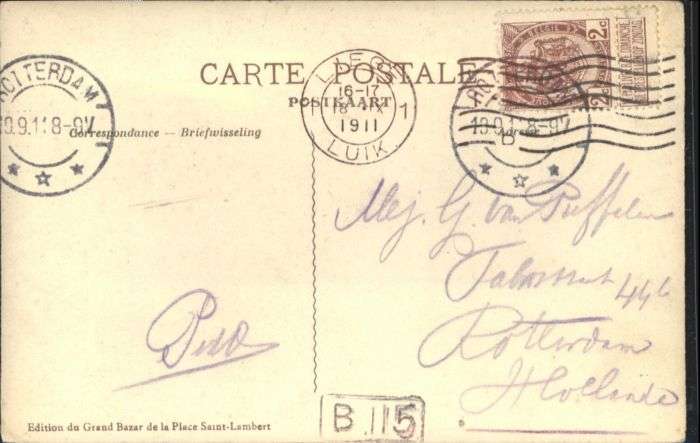 CARTE POSTALE
POSTKAART
Correspondance — Briefwisseling
Adresse
BELGIE
2c
2c
LIEGE
16-17
18 IX
1 1
1911
LUIK
ROTTERDAM
19.9.11 8-9V
ROTTERDAM
19.9.11 8-9V
B
Mej. G. van Puffelen
44b
Rotterdam
Hollande
Edition du Grand Bazar de la Place Saint-Lambert
B 115